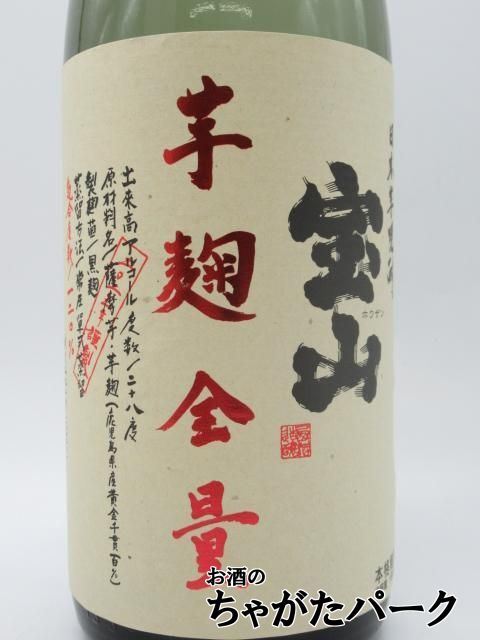 宝山
ホウザン
芋麹全量
出来高アルコール度数/二十八度
原材料名/薩摩芋・芋麹(鹿児島県産黄金千貫百%)
製麹菌/黒麹
蒸留方法/常圧単式蒸留
お酒の
ちゃがたパーク